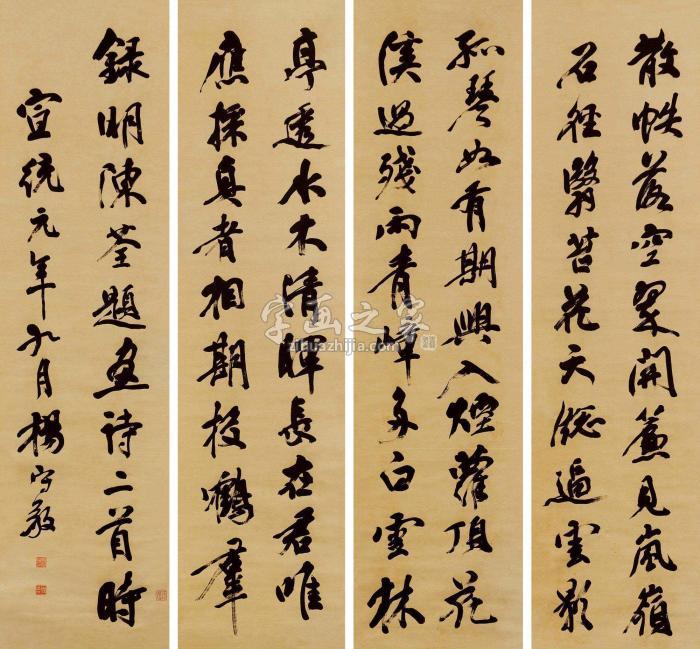 散帙落空翠開簾見嵐嶺
石徑翳苔花天牕逼雲影
孤琴如有期興入煙蘿頂花
溪過殘雨青嶂多白雲林
亭水木清暉長在君唯
應探真者相期投鶴羣
錄明陳荃題畫詩二首時
宣統元年九月楊守敬
字画之家
zihuazhijia.com